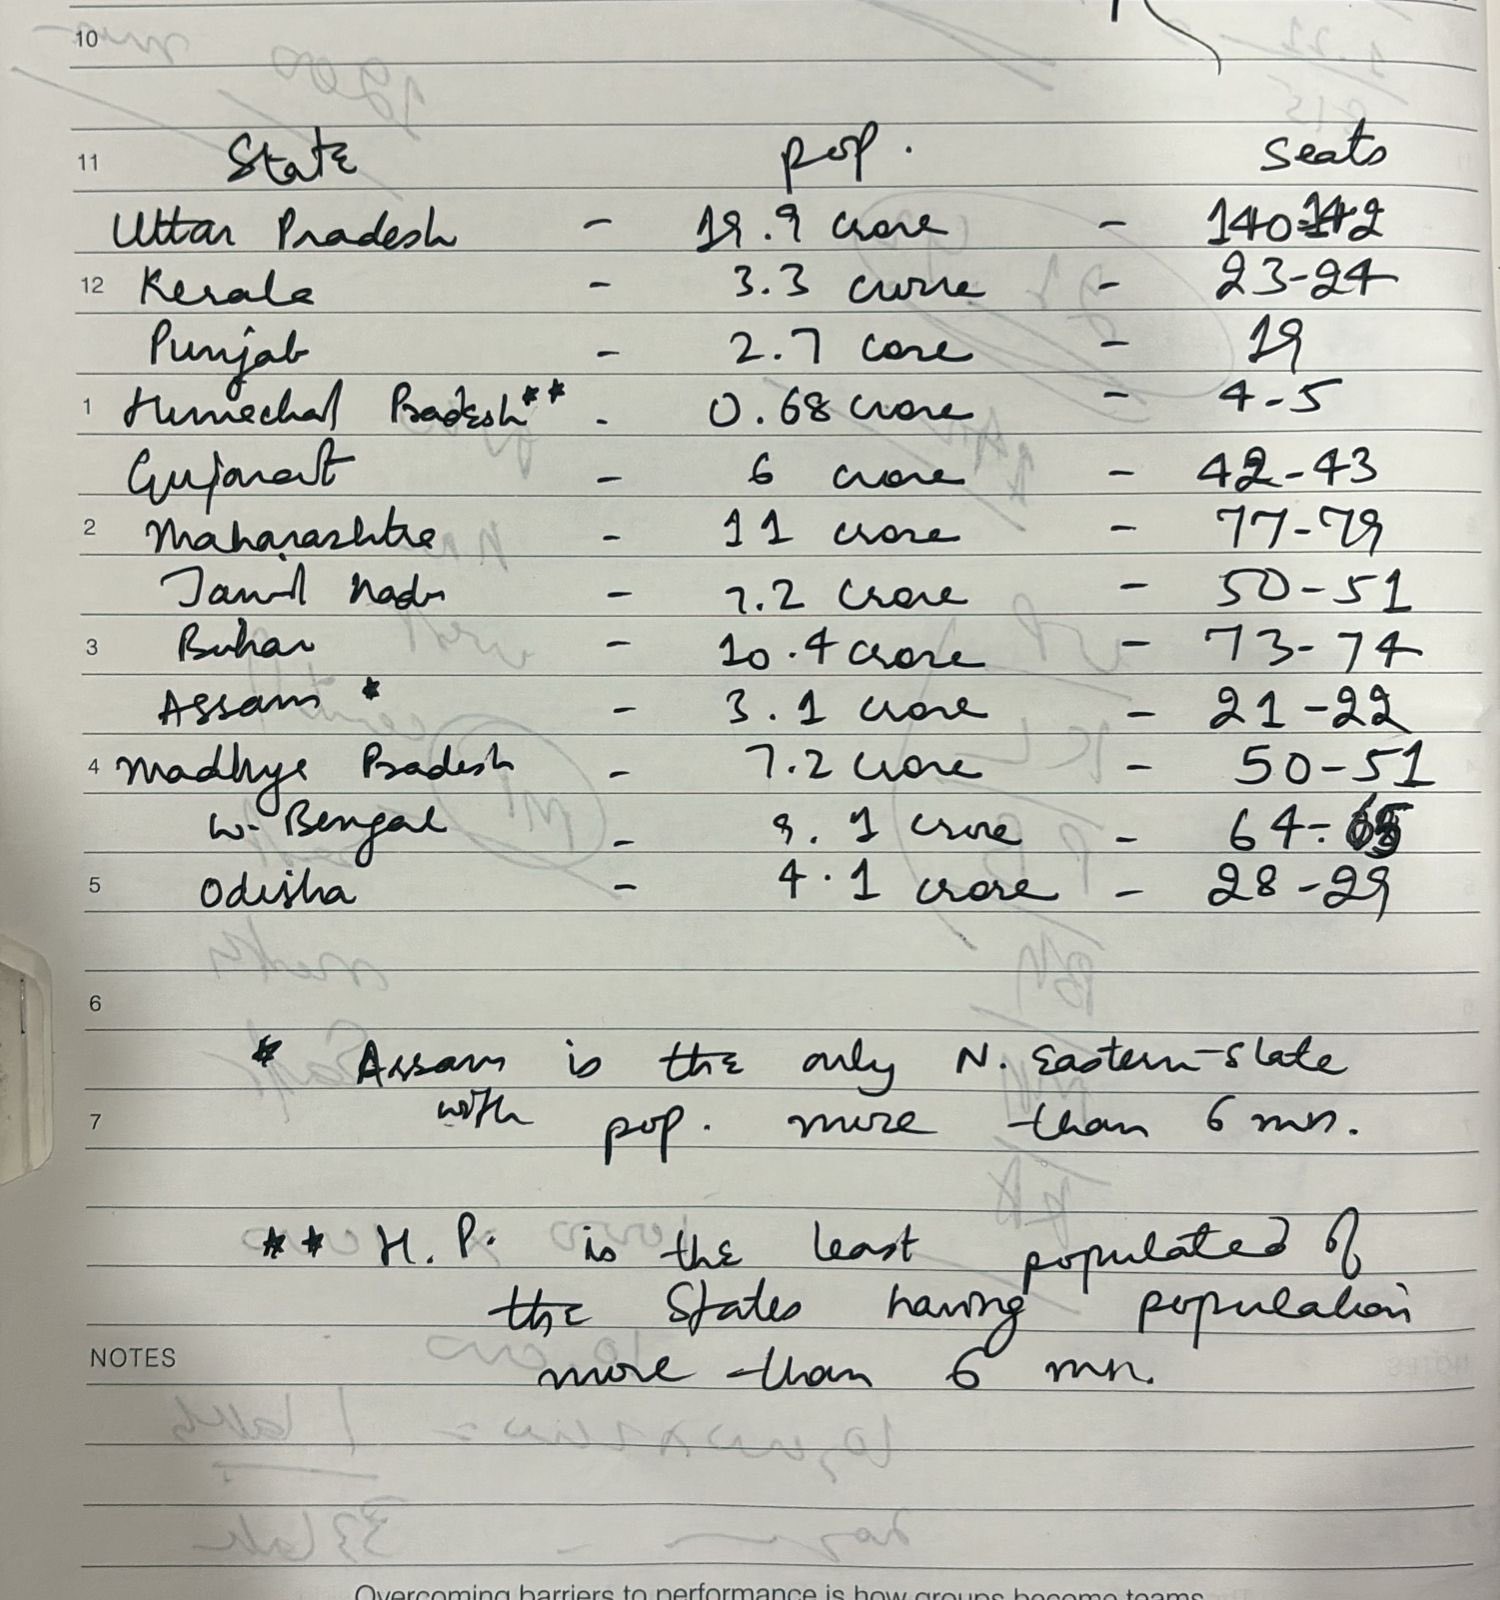 10
11 State pop. Seats
Uttar Pradesh - 19.9 crore - 140-142
12 Kerala - 3.3 crore - 23-24
Punjab - 2.7 crore - 19
1 Himachal Pradesh** - 0.68 crore - 4-5
Gujarat - 6 crore - 42-43
2 Maharashtra - 11 crore - 77-79
Tamil Nadu - 7.2 crore - 50-51
3 Bihar - 10.4 crore - 73-74
Assam * - 3.1 crore - 21-22
4 Madhya Pradesh - 7.2 crore - 50-51
W. Bengal - 9.1 crore - 64-65
5 Odisha - 4.1 crore - 28-29
6
* Assam is the only N. Eastern-State
7 with pop. more than 6 mn.
** H.P. is the least populated of
the States having population
NOTES more than 6 mn.
Overcoming barriers to performance is how groups become teams